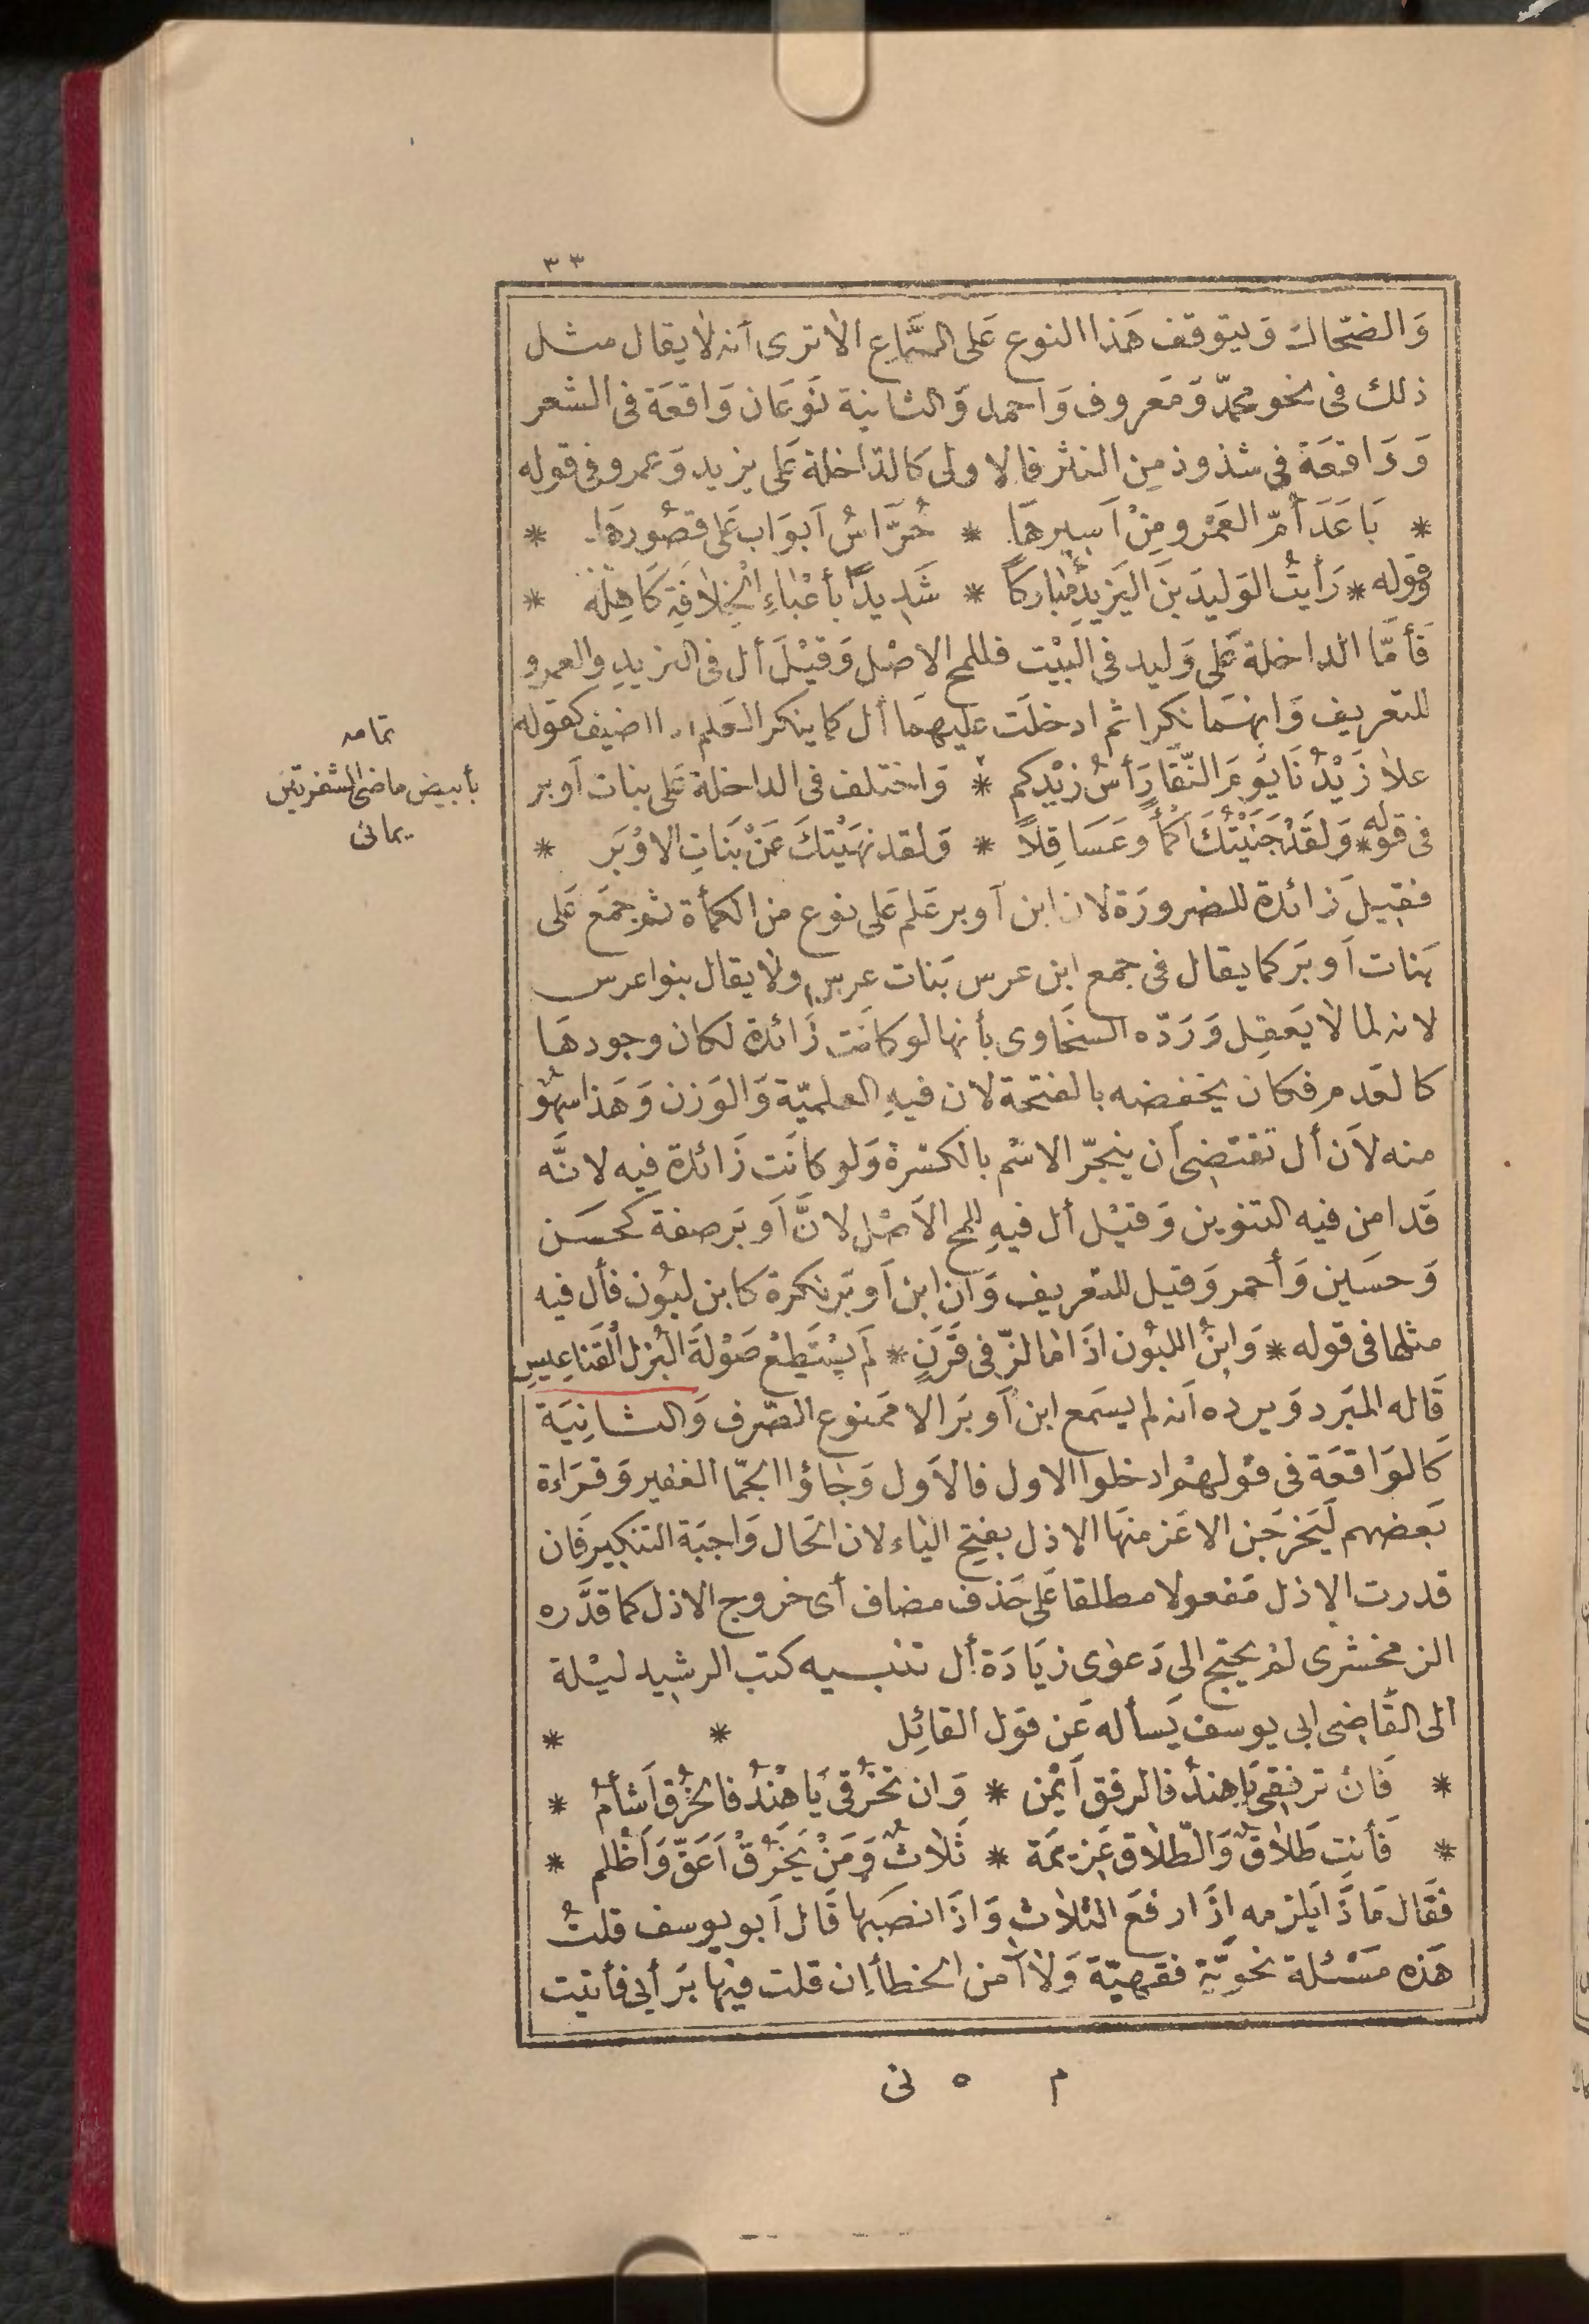 ٣٣
وَالضحّاك وَيتوقف هَذا النوع عَلى السَّمَاع الا ترى أنه لا يقال مثل
ذلك فى نحو محمّد وَمَعروف وَاحمد وَالثانية نَوعَان وَاقعَة فى الشعر
وَوَاقعَة فى شذوذ مِن النثر فالاولى كالدّاخلة عَلى يزيد وَعمرو فى قوله
* بَاعَدَ أمّ العَمْرو مِنْ اَسِيرهَا * حُرَّاسُ اَبوَاب عَلى قصُورهَا *
وقوله * رَأيتُ الوَليدَ بنَ اليَزيدِ مُباركاً * شَدِيدًا بأعْباءِ الْخِلافَةِ كَاهِلُه *
فَأمَّا الداخلة عَلى وَليد فى البيْت فللمح الاصْل وَقيْلَ أل فى اليزيدِ والعمرو
للتعريف وَانهمَا نكرا ثم ادخلَت عليهمَا أل كما ينكر العَلم اذا اضيف كقوله
علا زَيْدُنَا يَومَ النّقَا رَأسُ زَيْدِكم * وَاختلف فى الداخلة عَلى بنات اَوبر
فى قوله * وَلقَدْ جَنَيْتُكَ اَكمُأً وعَسَاقِلاً * وَلقد نهَيْتكَ عَنْ بَنَاتِ الاوْبَر *
فقِيلَ زائدة للضرورَة لان ابن آوبر عَلم عَلى نوع من الكمأة ثم جمَع عَلى
بَنات اَوبَر كما يقال فى جمع ابن عرس بَنات عرس ولا يقال بنوا عرس
لانه لما لا يَعقِل وَرَدّه السخَاوى بأنها لو كانَت زَائدة لكان وجودهَا
كالعَدم فكان يخفضه بالفتحة لان فيهِ العلميّة وَالوَزن وَهَذا سَهْوٌ
منه لاَن أل تقتضى أن ينجرّ الاسْم بالكسْرة وَلو كانَت زَائدة فيه لانَّه
قَد امن فيه التنوين وَقيْل أل فيهِ للمح الاَصْل لانَّ اَوبَر صفة كحسَن
وَحسَين وَأحمر وَقيل للتعريف وَان ابن اَوبَر نكرة كابن لبُون فأل فيه
مثلها فى قوله * وَابنُ اللبُون اذَا ما لزّ فى قَرَنٍ * لَم يَسْتَطِعْ صَوْلَةَ الْبُزل الْقَناعِيسِ
قَاله المبَرد وَيرده اَنه لم يسمَع ابن اَوبَر الا ممَنوع الصّرف وَالثانِيَة
كَالوَاقعَة فى قوْلهمْ ادخلوا الاول فالاَول وَجاؤا الجمّا الغفير وَقراءة
بَعضهم لَيَخرجَن الاعَز منهَا الاذل بفتح الياء لان الحَال وَاجبَة التنكير فَان
قدرت الاذل مَفعولا مطلقا عَلى حَذف مضاف أى خروج الاذل كما قدَّره
الزمخشرى لم يحتج الى دَعوى زيَادَة أل تنبيه كتب الرشيد ليْلة
الى القَاضى ابى يوسف يَسأله عَن قول القائِل * *
* فَان ترفقِى يَا هندُ فالرفق اَيْمن * وَان تخرُقى يَا هْنُدُ فالخرُق اَشأمُ *
* فَأنتِ طَلاقٌ وَالطّلاق عَزيمَة * ثَلاثٌ وَمَنْ يَخرُقْ اَعَقّ وَاَظْلم *
فقَال مَاذَا يَلزمه إذَا رفعَ الثلاث وَاذَا نصَبها قَال اَبو يوسف قلتُ
هَذه مَسْئلة نحوّية فقهيّة وَلا آمن الخطأ إن قلت فيهَا برَأيى فأتيت
م ٥ نى
تمامه
بأبيض ماضى الشفرتين
يمانى